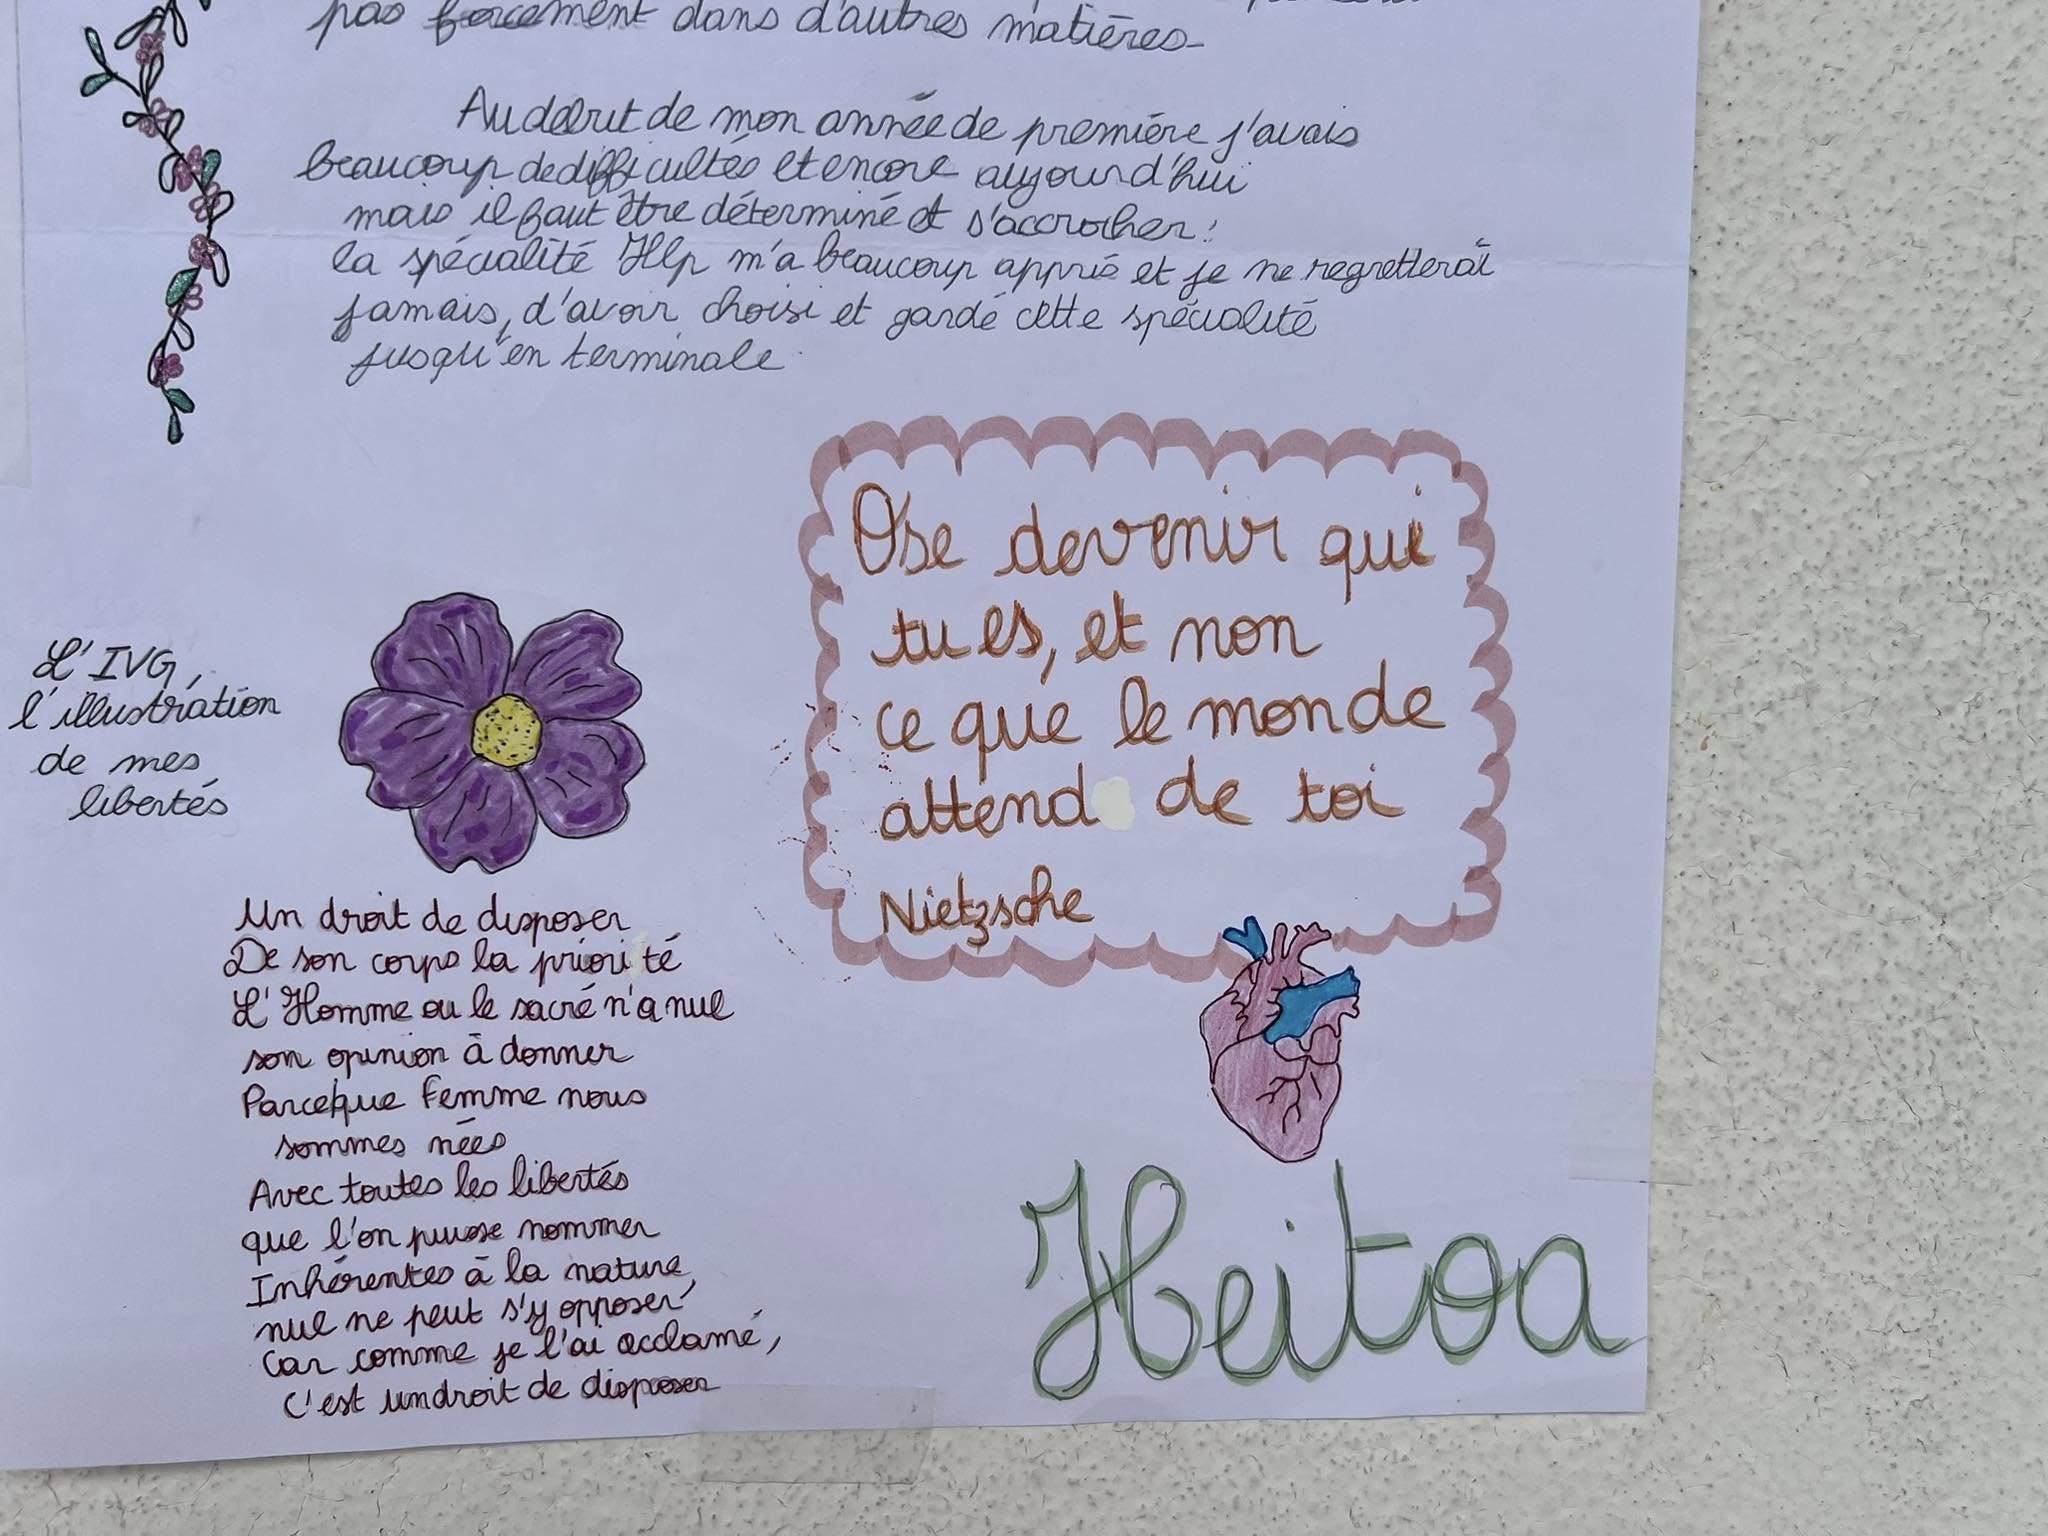 pas forcement dans d'autres matières
Au début de mon année de première j'avais
beaucoup de difficultés et encore aujourd'hui
mais il faut être déterminé et s'accrocher !
la spécialité Hlp m'a beaucoup appris et je ne regretterai
jamais, d'avoir choisi et gardé cette spécialité
jusqu'en terminale
Ose devenir qui
tu es, et non
ce que le monde
attend de toi
Nietzsche
L'IVG,
l'illustration
de mes
libertés
Un droit de disposer
De son corps la priorité
L'Homme ou le sacré n'a nul
son opinion à donner
Parceque Femme nous
sommes nées
Avec toutes les libertés
que l'on puisse nommer
Inhérentes à la nature,
nul ne peut s'y opposer
Car comme je l'ai acclamé,
c'est un droit de disposer
Heitoa